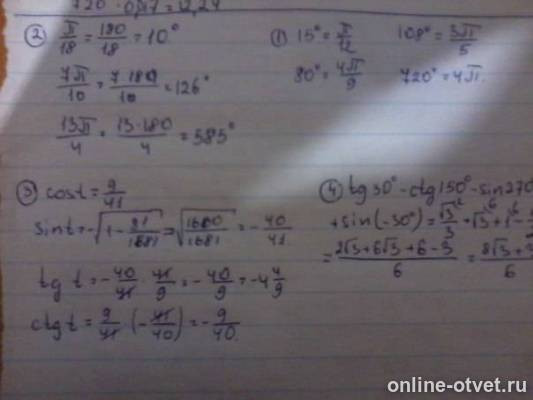 720 · 0,017 = 12,24
② π/18 = 180/18 = 10°
7π/10 = 7·180/10 = 126°
13π/4 = 13·180/4 = 585°
① 15° = π/12 108° = 3π/5
80° = 4π/9 720° = 4π.
③ cos t = 9/41
sin t = -√(1 - 81/1681) = √(1600/1681) = -40/41
tg t = -40/41 · 41/9 = -40/9 = -4 4/9
ctg t = 9/41 · (-41/40) = -9/40.
④ tg 30° - ctg 150° - sin 270°
+ sin(-30°) = √3/3 + √3 + 1 -
= (2√3 + 6√3 + 6 - 3)/6 = 8√3 + 3/6
online-otvet.ru